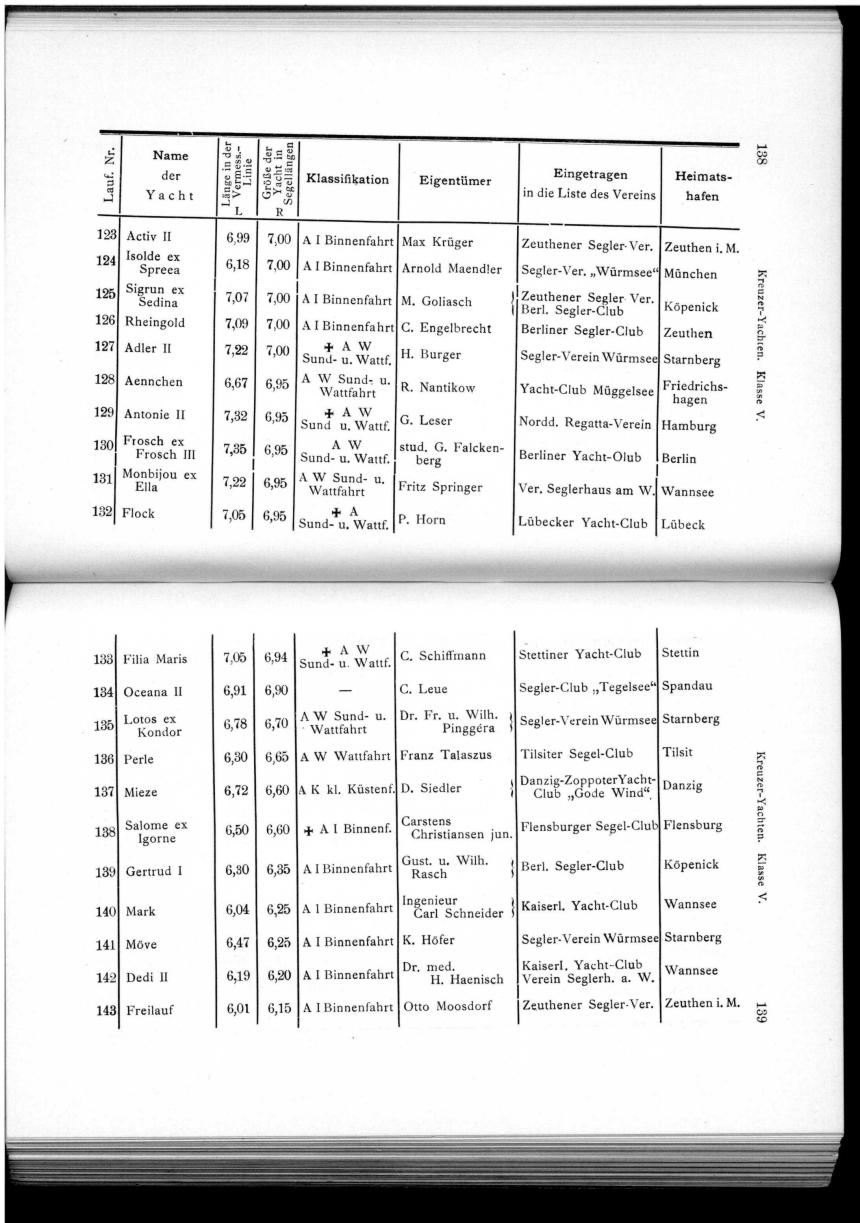 138
Kreuzer-Yachten. Klasse V.
Lauf. Nr. | Name der Yacht | Länge in der Vermess.-Linie L | Größe der Yacht in Segellängen R | Klassifikation | Eigentümer | Eingetragen in die Liste des Vereins | Heimats-hafen
123 Activ II 6,99 7,00 A I Binnenfahrt Max Krüger Zeuthener Segler-Ver. Zeuthen i. M.
124 Isolde ex Spreea 6,18 7,00 A I Binnenfahrt Arnold Maendler Segler-Ver. „Würmsee“ München
125 Sigrun ex Sedina 7,07 7,00 A I Binnenfahrt M. Goliasch Zeuthener Segler-Ver. Berl. Segler-Club Köpenick
126 Rheingold 7,09 7,00 A I Binnenfahrt C. Engelbrecht Berliner Segler-Club Zeuthen
127 Adler II 7,22 7,00 ✠ A W Sund- u. Wattf. H. Burger Segler-Verein Würmsee Starnberg
128 Aennchen 6,67 6,95 A W Sund- u. Wattfahrt R. Nantikow Yacht-Club Müggelsee Friedrichs-hagen
129 Antonie II 7,32 6,95 ✠ A W Sund u. Wattf. G. Leser Nordd. Regatta-Verein Hamburg
130 Frosch ex Frosch III 7,35 6,95 A W Sund- u. Wattf. stud. G. Falcken-berg Berliner Yacht-Olub Berlin
131 Monbijou ex Ella 7,22 6,95 A W Sund- u. Wattfahrt Fritz Springer Ver. Seglerhaus am W. Wannsee
132 Flock 7,05 6,95 ✠ A Sund- u. Wattf. P. Horn Lübecker Yacht-Club Lübeck
133 Filia Maris 7,05 6,94 ✠ A W Sund- u. Wattf. C. Schiffmann Stettiner Yacht-Club Stettin
134 Oceana II 6,91 6,90 — C. Leue Segler-Club „Tegelsee“ Spandau
135 Lotos ex Kondor 6,78 6,70 A W Sund- u. Wattfahrt Dr. Fr. u. Wilh. Pinggéra Segler-Verein Würmsee Starnberg
136 Perle 6,30 6,65 A W Wattfahrt Franz Talaszus Tilsiter Segel-Club Tilsit
137 Mieze 6,72 6,60 A K kl. Küstenf. D. Siedler Danzig-Zoppoter Yacht-Club „Gode Wind“. Danzig
138 Salome ex Igorne 6,50 6,60 ✠ A I Binnenf. Carstens Christiansen jun. Flensburger Segel-Club Flensburg
139 Gertrud I 6,30 6,35 A I Binnenfahrt Gust. u. Wilh. Rasch Berl. Segler-Club Köpenick
140 Mark 6,04 6,25 A I Binnenfahrt Ingenieur Carl Schneider Kaiserl. Yacht-Club Wannsee
141 Möve 6,47 6,25 A I Binnenfahrt K. Höfer Segler-Verein Würmsee Starnberg
142 Dedi II 6,19 6,20 A I Binnenfahrt Dr. med. H. Haenisch Kaiserl. Yacht-Club Verein Seglerh. a. W. Wannsee
143 Freilauf 6,01 6,15 A I Binnenfahrt Otto Moosdorf Zeuthener Segler-Ver. Zeuthen i. M.
Kreuzer-Yachten. Klasse V.
139